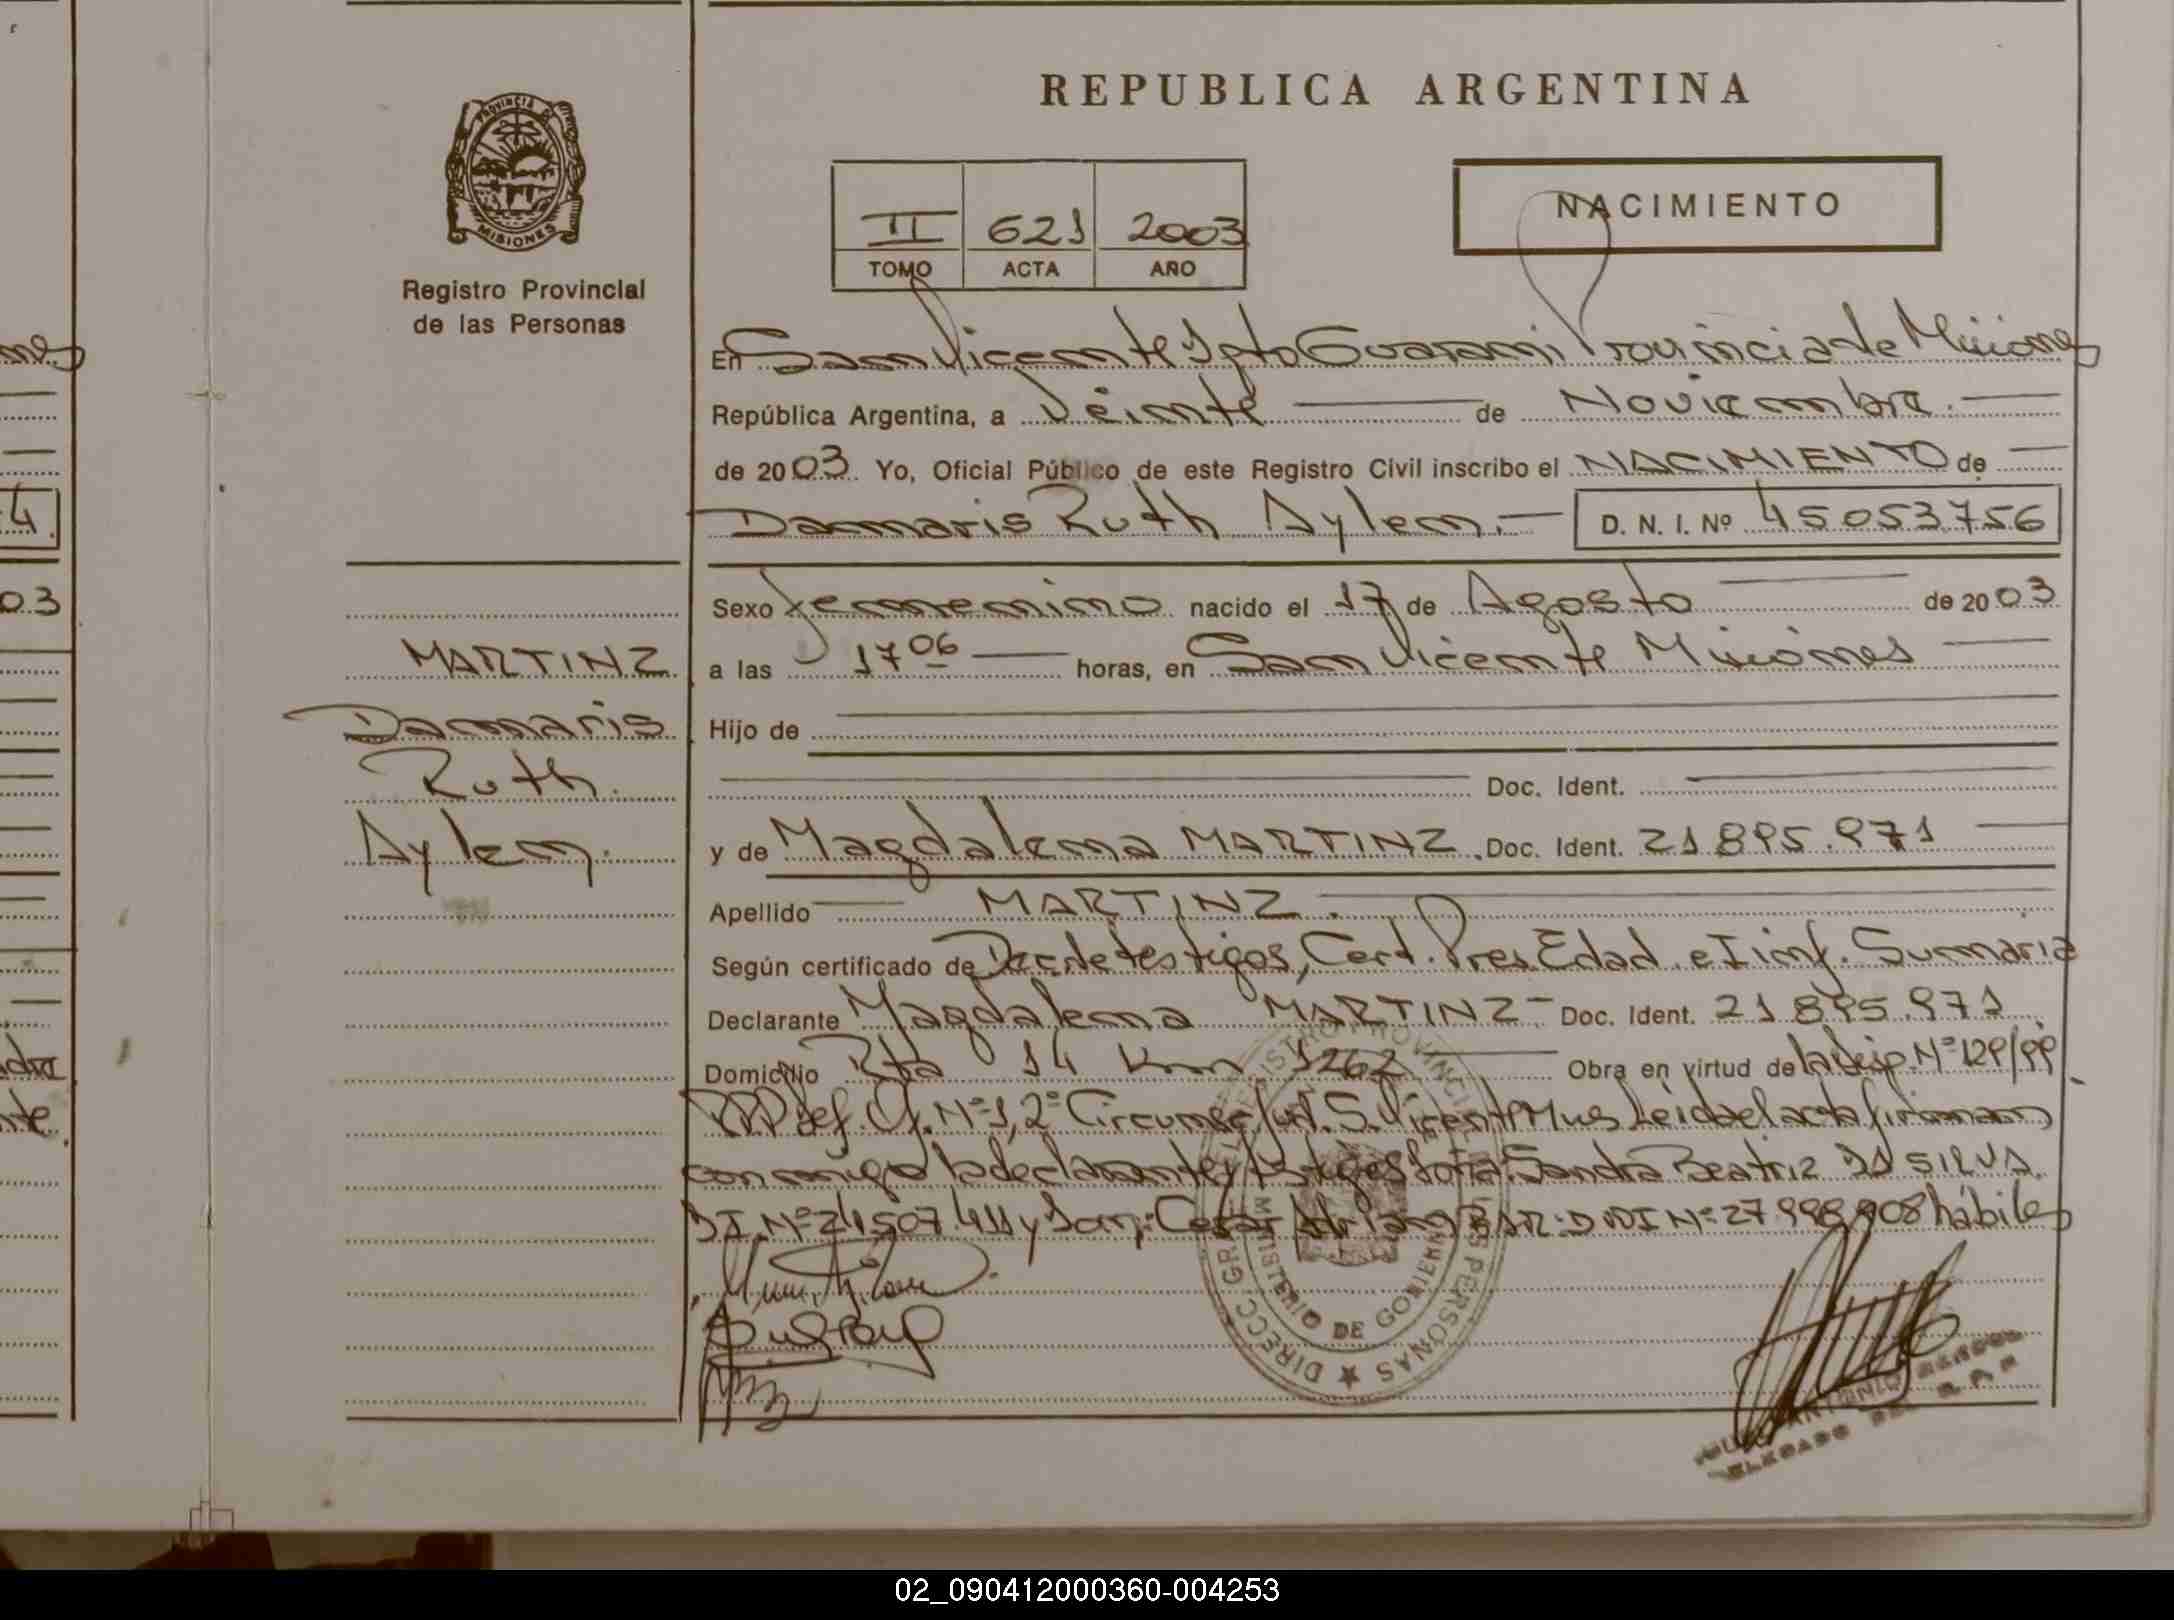 REPUBLICA ARGENTINA
PROVINCIA DE
MISIONES
Registro Provincial
de las Personas
II 621 2003
TOMO ACTA AÑO
NACIMIENTO
En San Vicente Dpto Guarani Provincia de Misiones
República Argentina, a Veinte de Noviembre.
de 2003. Yo, Oficial Público de este Registro Civil inscribo el NACIMIENTO de
Damaris Ruth Aylen. D. N. I. Nº 45053756
Sexo femenino nacido el 17 de Agosto de 2003
a las 17 06 horas, en San Vicente Misiones
Hijo de
Doc. Ident.
y de Magdalena MARTINZ. Doc. Ident. 21 895.971
Apellido MARTINZ.
Según certificado de Dec. de testigos, Cert. Pres. Edad e Inf. Sumaria
Declarante Magdalena MARTINZ Doc. Ident. 21 895.971
Domicilio Rta 14 Km 1262 Obra en virtud de la Nº 129/99
Def. Of. Nº 1, 2º Circunsc. Jud. S. Vicente Mnes Leida el acta firman
conmigo la declarante y testigos Sandra Beatriz DA SILVA
DI Nº 24 507.411 y Cesar Adrian DNI Nº 27.998.908 hábiles
MARTINZ
Damaris
Ruth.
Aylen.
DIRECC GRAL DEL REGISTRO PROVINCIAL DE LAS PERSONAS
MINISTERIO DE GOBIERNO
02_090412000360-004253